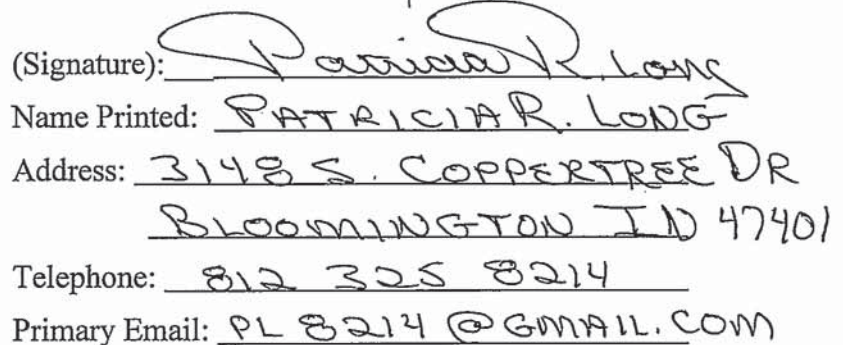 (Signature): Patricia R. Long
Name Printed: PATRICIA R. LONG
Address: 3148 S. COPPERTREE DR
BLOOMINGTON IN 47401
Telephone: 812 325 8214
Primary Email: PL8214@GMAIL.COM